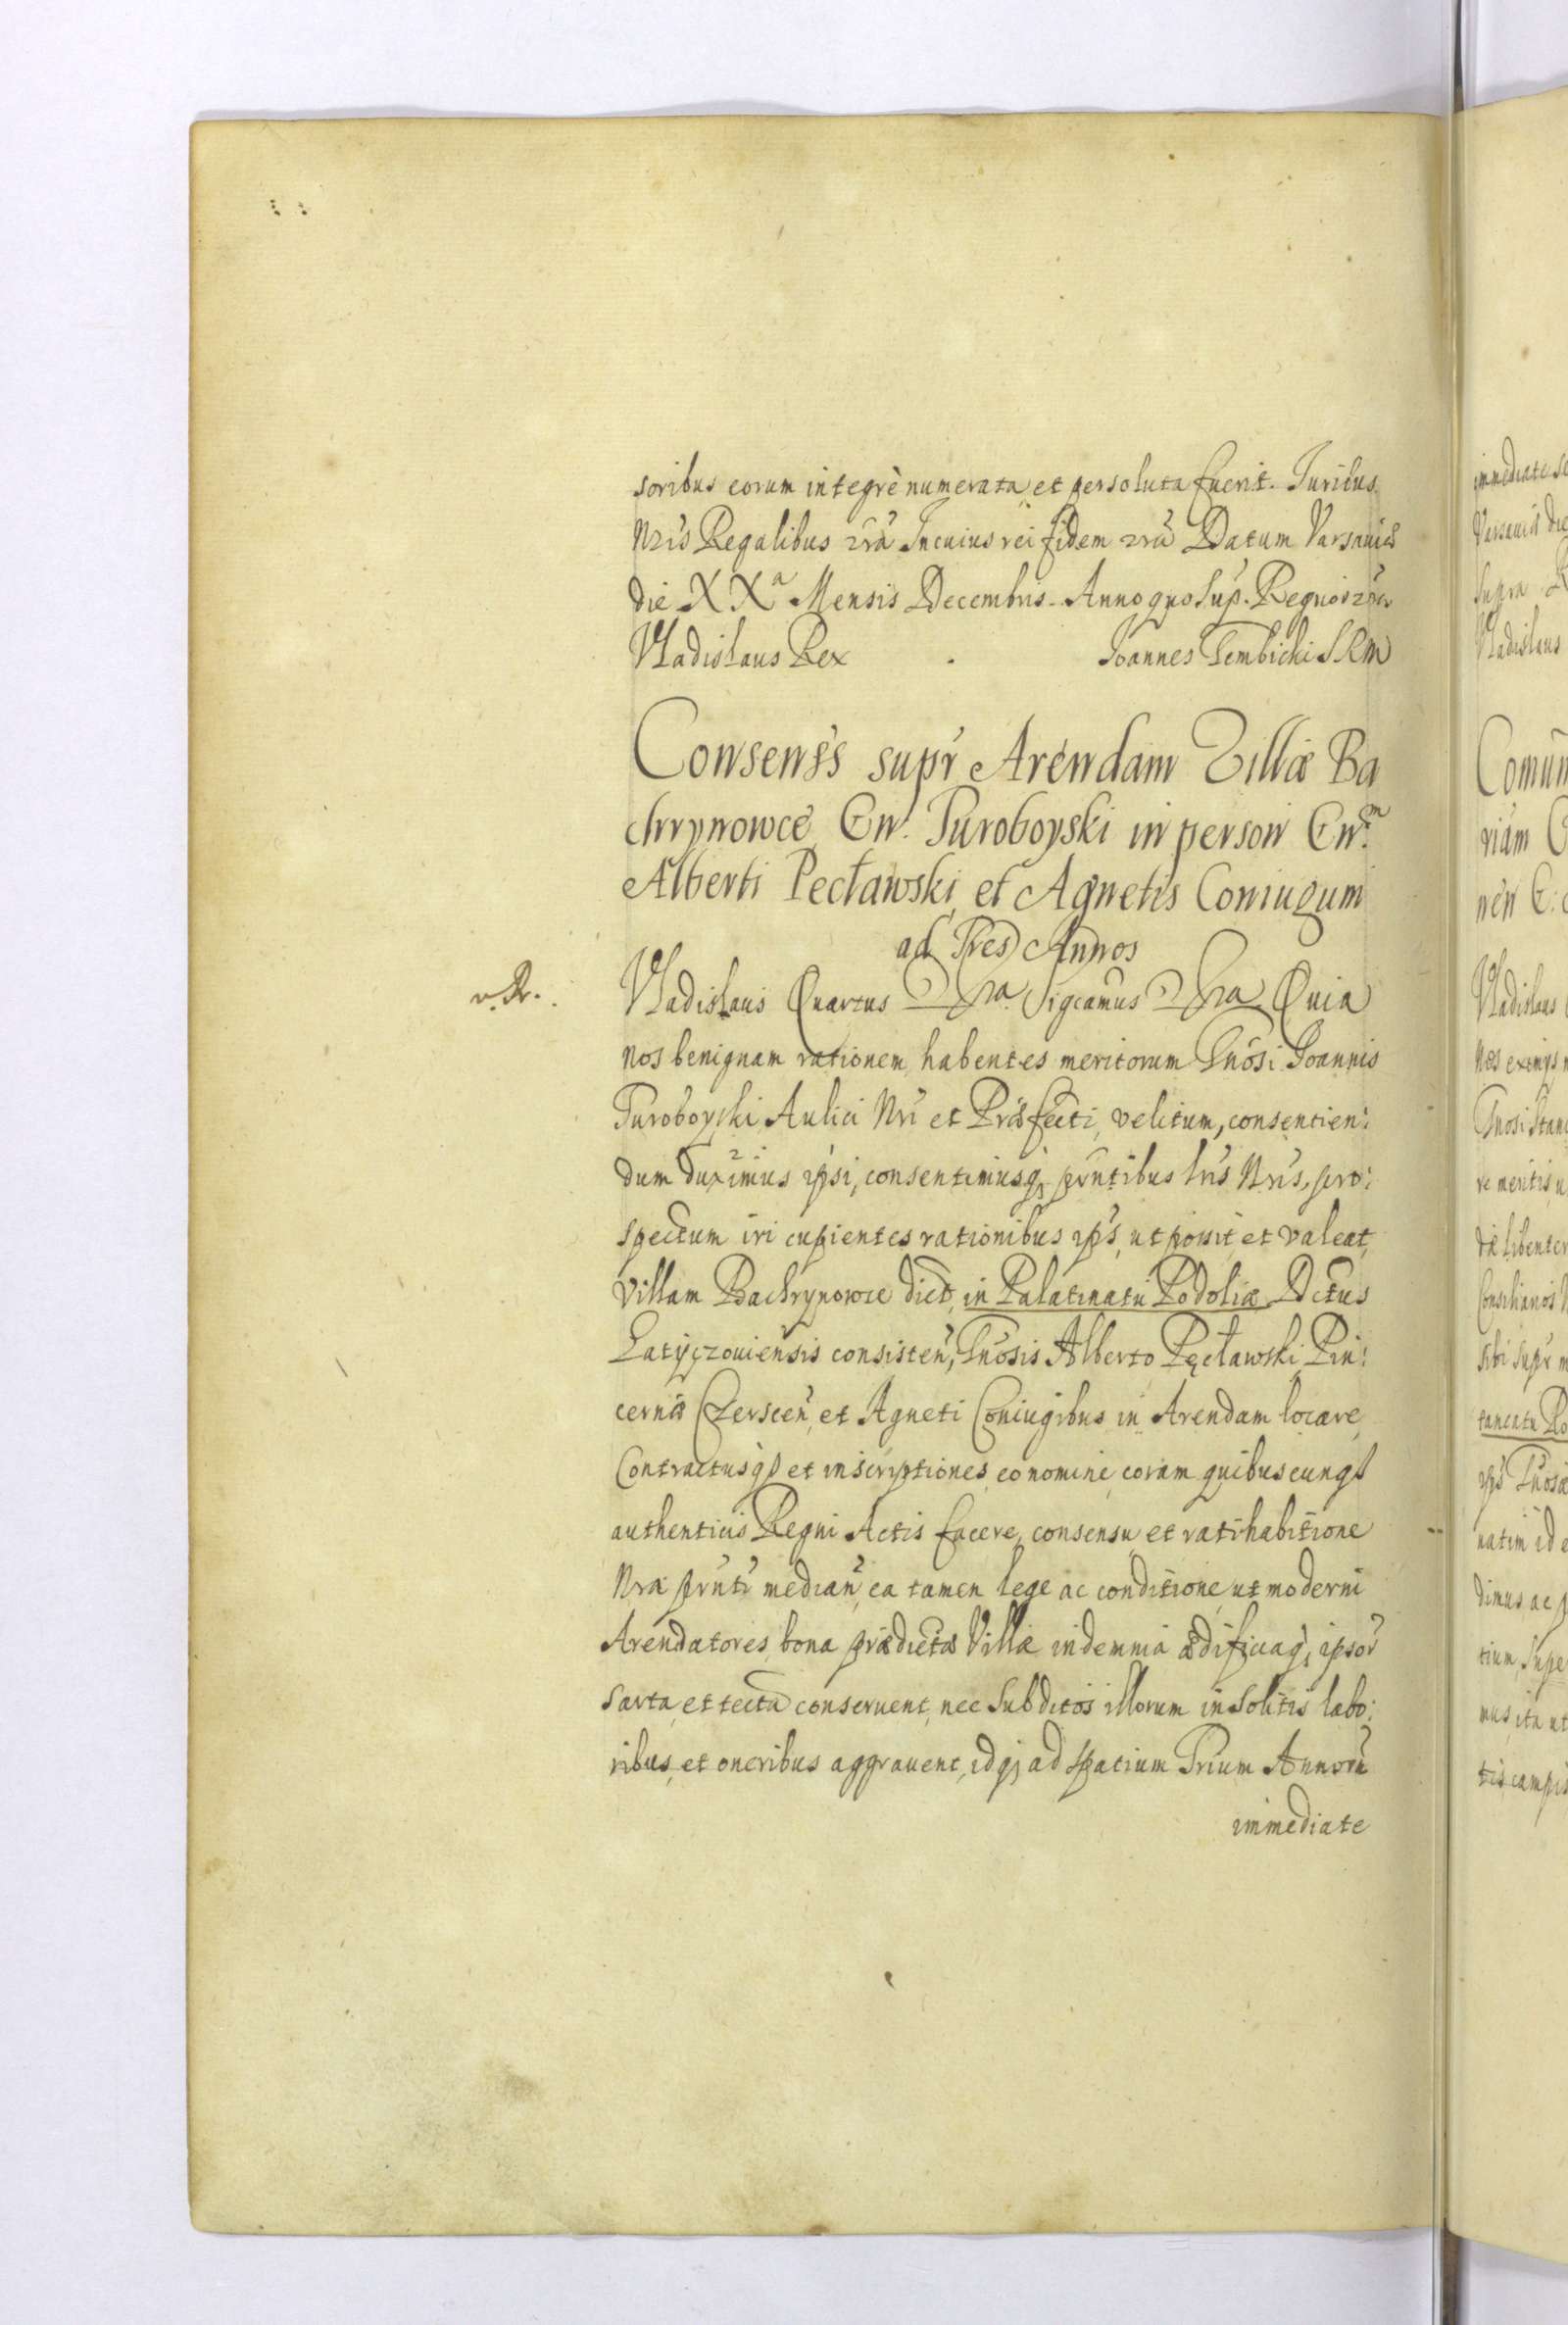 soribus eorum integrè numerata et persoluta fuerit. Juribus
Nris Regalibus Incuius rei fidem Datum Varsaviæ
die XXa Mensis Decembris. Anno quo Sup. Regnor
Vladislaus Rex Joannes Gembicki SRM
Consenss supr Arendam Villæ Ba
chrynowce Gn. Turoboyski in person Gn.m
Alberti Pecławski et Agnetis Coniugum
ad Tres Annos
v.R. Vladislaus Quartus Sigcamus Quia
nos benignam rationem habentes meritorum Gnosi Joannis
Turoboyski Aulici Nri et Præfecti velitum, consentien:
dum duximus ipsi, consentimusq; pnntibus lris Nris, pro:
spectum iri cupientes rationibus ips, ut possit et valeat
villam Bachrynowce dict in Palatinatu Podoliæ Dctus
Latyczoviensis consisten, Gnosis Alberto Pęcławski Pin:
cernæ Czerscen et Agneti Coniugibus in Arendam locare
Contractusq; et inscriptiones eo nomine coram quibuscunq;
authenticis Regni Actis facere, consensu et ratihabitione
Nra pnnti median, ea tamen lege ac conditione ut moderni
Arendatores, bona prædictæ Villæ indemnia ædificiaq; ipsor
sarta et tecta conservent, nec Subditos illorum insolitis labo:
ribus et oneribus aggravent, idq; ad spatium Trium Annoru
immediate
immediate
Varsaviæ die
supra
Vladislaus
Comun
riam
nen G:
Vladislaus
Nos eximys
Gnosi Stan
re meritis
libenter
sibi supr
ips Gnosæ
natim id
dimus ac
tium, supe
mus, ita ut
tis, campis